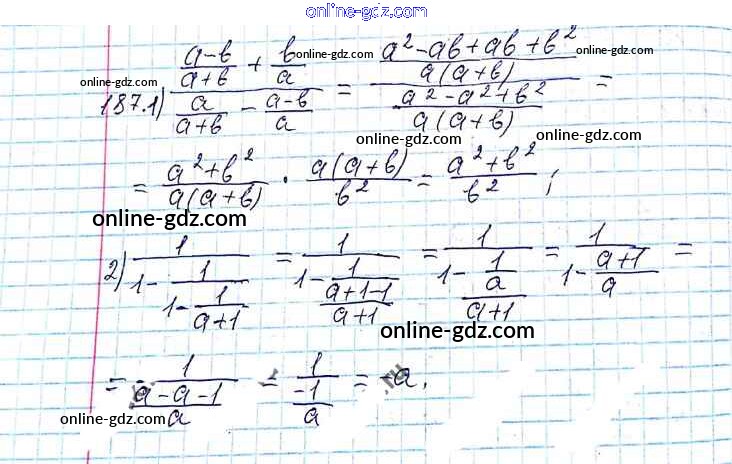 online-gdz.com
187.1) ((a-b)/(a+b) + b/a)/(a/(a+b) - (a-b)/a) = ((a²-ab+ab+b²)/(a(a+b)))/((a²-a²+b²)/(a(a+b))) =
online-gdz.com online-gdz.com online-gdz.com
online-gdz.com online-gdz.com online-gdz.com
= (a²+b²)/(a(a+b)) · (a(a+b))/b² = (a²+b²)/b² ;
online-gdz.com
2) 1/(1-1/(1-1/(a+1))) = 1/(1-1/((a+1-1)/(a+1))) = 1/(1-(1/a)/(a+1)) = 1/(1-(a+1)/a) =
online-gdz.com
= 1/((a-a-1)/a) = 1/(-1/a) = -a.
online-gdz.com online-gdz.com